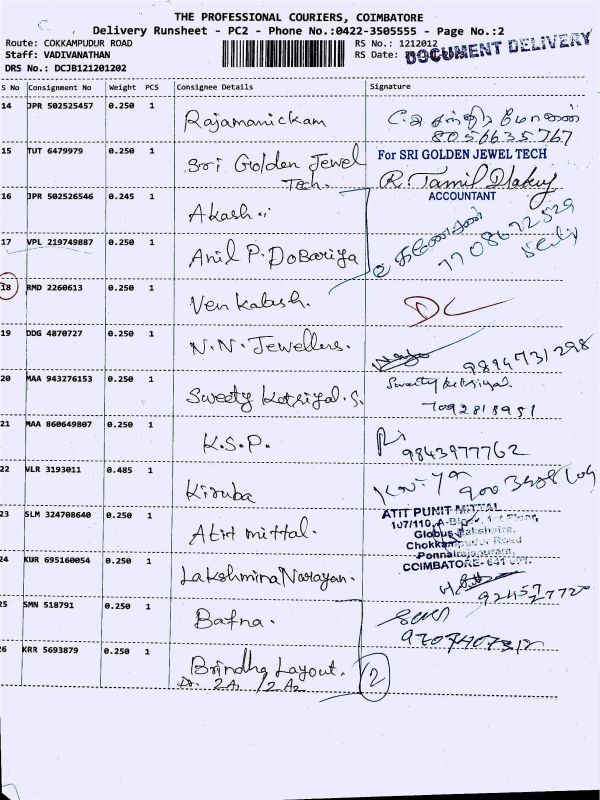 THE PROFESSIONAL COURIERS, COIMBATORE
Delivery Runsheet - PC2 - Phone No.:0422-3505555 - Page No.:2
Route: COKKAMPUDUR ROAD RS No.: 1212012
Staff: VADIVANATHAN RS Date:
DRS No.: DCJB121201202
DOCUMENT DELIVERY
S No Consignment No Weight PCS Consignee Details Signature
14 JPR 502525457 0.250 1 Rajamanickam
8056635767
15 TUT 6479979 0.250 1 Sri Golden Jewel Tech. For SRI GOLDEN JEWEL TECH
ACCOUNTANT
16 JPR 502526546 0.245 1 Akash
17 VPL 219749887 0.250 1 Anil P. Dobariya
7708672529
18 RMD 2260613 0.250 1 Venkatesh. DL
19 DDG 4870727 0.250 1 N.N. Jewellers.
9894731298
20 MAA 943276153 0.250 1 Sweety Kotriyal. S.
7092818951
21 MAA 860649807 0.250 1 K.S.P.
9843977762
22 VLR 3193011 0.485 1 Kiruba
23 SLM 324708640 0.250 1 Atit mittal. ATIT PUNIT MITTAL
107/110, A-Block, 1st Floor,
Globus
Chokkampudur Road
Ponnairajapuram,
COIMBATORE- 641
24 KUR 695160054 0.250 1 Lakshmina Narayan.
9245727720
25 SMN 518791 0.250 1 Bafna.
26 KRR 5693879 0.250 1 Brindha Layout. 2
2A1 / 2A2